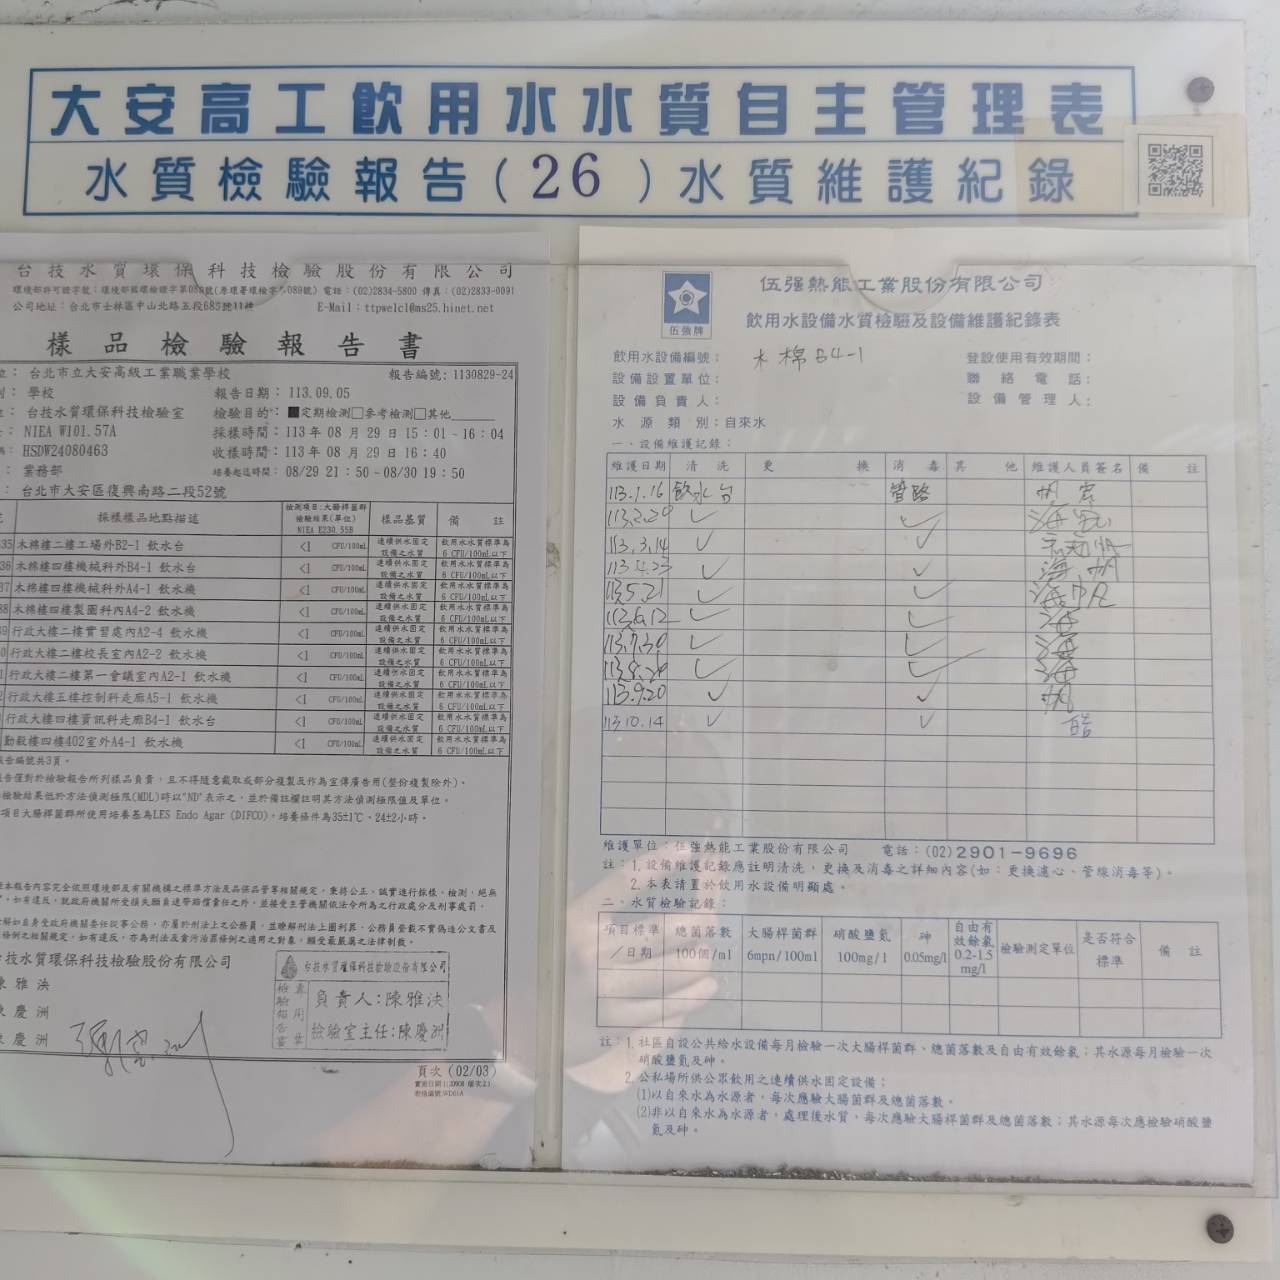 大安高工飲用水水質自主管理表
水質檢驗報告(26)水質維護紀錄
台技水質環保科技檢驗股份有限公司
電話：(02)2834-5800 傳真：(02)2833-0091
公司地址：台北市士林區中山北路五段685號11樓 E-Mail：ttpwelcl@ms25.hinet.net
樣品檢驗報告書
台北市立大安高級工業職業學校 報告編號：1130829-24
學校 報告日期：113.09.05
台技水質環保科技檢驗室 檢驗目的：■定期檢測□參考檢測□其他
NIEA W101.57A 採樣時間：113年08月29日15：01~16：04
HSDW24080463 收樣時間：113年08月29日16：40
業務部 培養起迄時間：08/29 21：50~08/30 19：50
台北市大安區復興南路二段52號
採樣樣品地點描述 檢測項目：大腸桿菌群 檢驗結果(單位) NIEA E230.55B 樣品基質 備註
35 木棉樓二樓工場外B2-1 飲水台 <1 CFU/100mL 連續供水固定設備之水質 飲用水水質標準為6 CFU/100mL以下
36 木棉樓四樓機械科外B4-1 飲水台 <1 CFU/100mL 連續供水固定設備之水質 飲用水水質標準為6 CFU/100mL以下
37 木棉樓四樓機械科外A4-1 飲水機 <1 CFU/100mL 連續供水固定設備之水質 飲用水水質標準為6 CFU/100mL以下
38 木棉樓四樓製圖科內A4-2 飲水機 <1 CFU/100mL 連續供水固定設備之水質 飲用水水質標準為6 CFU/100mL以下
行政大樓二樓實習處內A2-4 飲水機 <1 CFU/100mL 連續供水固定設備之水質 飲用水水質標準為6 CFU/100mL以下
行政大樓二樓校長室內A2-2 飲水機 <1 CFU/100mL 連續供水固定設備之水質 飲用水水質標準為6 CFU/100mL以下
行政大樓二樓第一會議室內A2-1 飲水機 <1 CFU/100mL 連續供水固定設備之水質 飲用水水質標準為6 CFU/100mL以下
行政大樓五樓控制科走廊A5-1 飲水機 <1 CFU/100mL 連續供水固定設備之水質 飲用水水質標準為6 CFU/100mL以下
行政大樓四樓資訊科走廊B4-1 飲水台 <1 CFU/100mL 連續供水固定設備之水質 飲用水水質標準為6 CFU/100mL以下
勤毅樓四樓402室外A4-1 飲水機 <1 CFU/100mL 連續供水固定設備之水質 飲用水水質標準為6 CFU/100mL以下
報告編號共3頁。
報告僅對於檢驗報告所列樣品負責，且不得隨意截取或部分複製及作為宣傳廣告用(整份複製除外)。
檢驗結果低於方法偵測極限(MDL)時以"ND"表示之，並於備註欄註明其方法偵測極限值及單位。
項目大腸桿菌群所使用培養基為LES Endo Agar (DIFCO)，培養條件為35±1℃、24±2小時。
本報告內容完全依照環境部及有關機構之標準方法及品保品管等相關規定，秉持公正、誠實進行採樣、檢測，絕無
如有違反，就政府機關所受損失願負連帶賠償責任之外，並接受主管機關依法令所為之行政處分及刑事處罰。
解如自身受政府機關委任從事公務，亦屬於刑法上之公務員，並瞭解刑法上圖利罪、公務員登載不實偽造公文書及
條例之相關規定，如有違反，亦為刑法及貪污治罪條例之適用之對象，願受最嚴厲之法律制裁。
台技水質環保科技檢驗股份有限公司
陳雅泱
陳慶洲
陳慶洲
台技水質環保科技檢驗股份有限公司
檢驗報告專用章
負責人：陳雅泱
檢驗室主任：陳慶洲
頁次(02/03)
伍強牌
伍強熱能工業股份有限公司
飲用水設備水質檢驗及設備維護紀錄表
飲用水設備編號： 木棉B4-1 登設使用有效期間：
設備設置單位： 聯絡電話：
設備負責人： 設備管理人：
水源類別：自來水
一、設備維護記錄：
維護日期 清洗 更換 消毒 其他 維護人員簽名 備註
113.1.16 飲水台 管路
113.2.20 ✓ ✓
113.3.14 ✓ ✓
113.4.23 ✓ ✓
113.5.21 ✓ ✓
113.6.12 ✓ ✓
113.7.30 ✓ ✓
113.8.20 ✓ ✓
113.9.20 ✓ ✓
113.10.14 ✓ ✓
維護單位：伍強熱能工業股份有限公司 電話：(02)2901-9696
註：1.設備維護記錄應註明清洗，更換及消毒之詳細內容(如：更換濾心、管線消毒等)。
2.本表請置於飲用水設備明顯處。
二、水質檢驗記錄：
項目標準/日期 總菌落數100個/ml 大腸桿菌群6mpn/100ml 硝酸鹽氮100mg/l 砷0.05mg/l 自由有效餘氯0.2-1.5mg/l 檢驗測定單位 是否符合標準 備註
註：1.社區自設公共給水設備每月檢驗一次大腸桿菌群、總菌落數及自由有效餘氯；其水源每月檢驗一次
硝酸鹽氮及砷。
2.公私場所供公眾飲用之連續供水固定設備；
(1)以自來水為水源者，每次應驗大腸桿菌群及總菌落數。
(2)非以自來水為水源者，處理後水質，每次應驗大腸桿菌群及總菌落數；其水源每次應檢驗硝酸鹽
氮及砷。